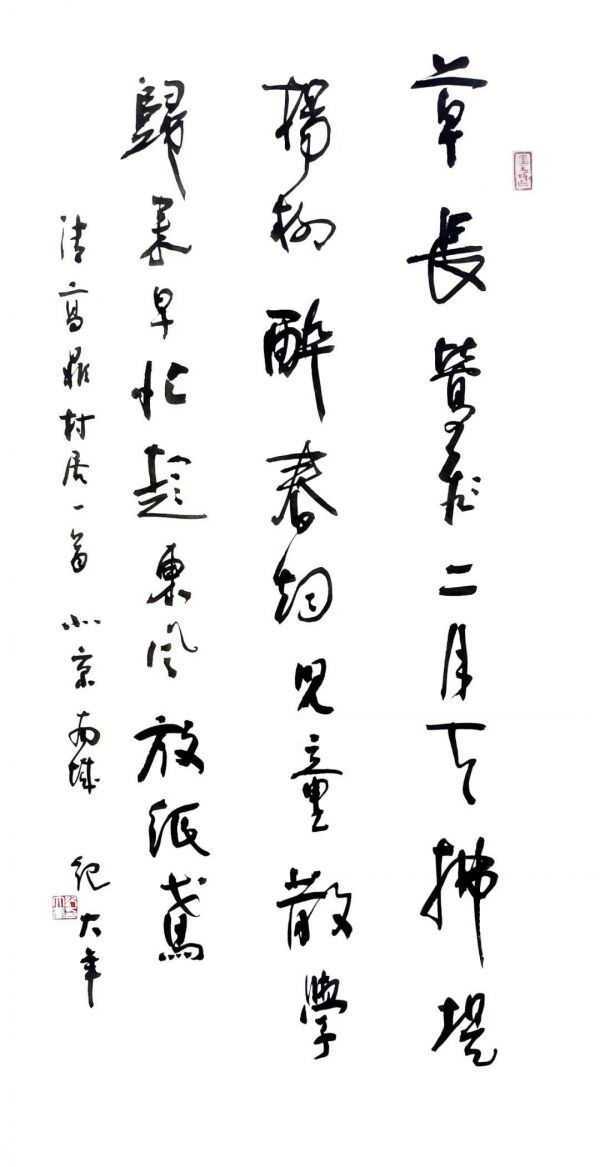 草長鶯飛二月天拂堤
楊柳醉春烟兒童散學
歸来早忙趁東風放紙鳶
清高鼎村居一首 北京南城 紀大年